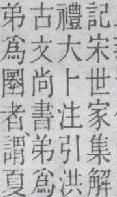 記宋世家集解
禮大卜注引洪
古文尚書弟爲
弟爲圛者謂夏